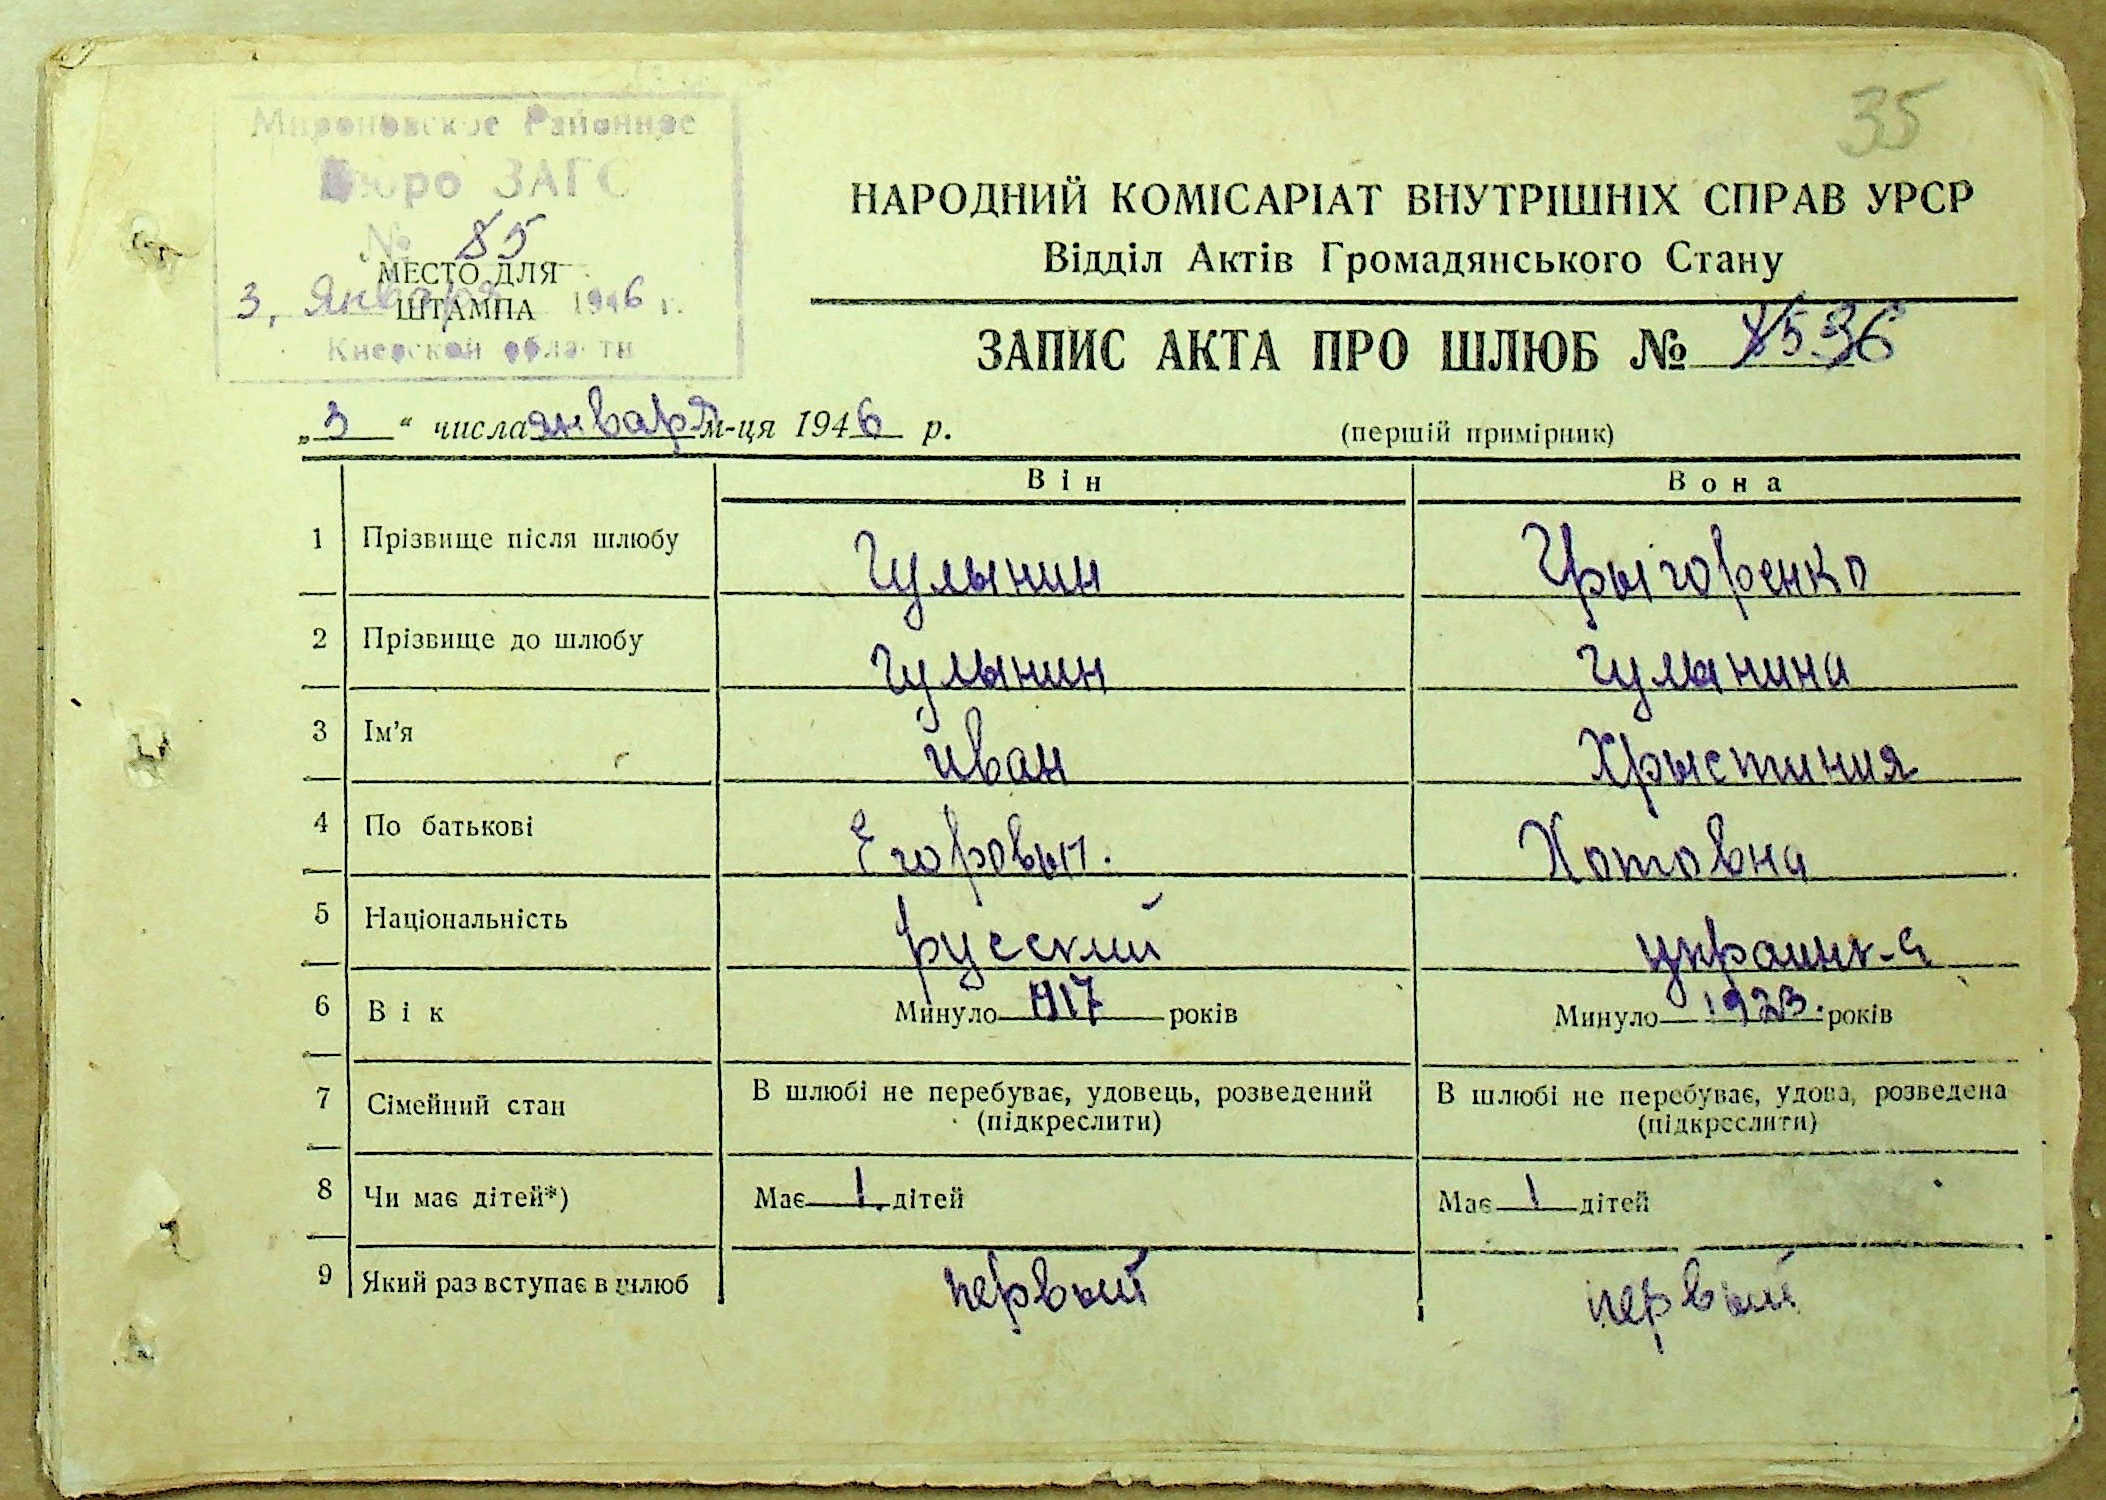 35
Мироновское Районное
Бюро ЗАГС
№ 85
МЕСТО ДЛЯ
ШТАМПА
3, Января 1946 г.
Киевской области
НАРОДНИЙ КОМІСАРІАТ ВНУТРІШНІХ СПРАВ УРСР
Відділ Актів Громадянського Стану
ЗАПИС АКТА ПРО ШЛЮБ № 36
„3“ числа января м-ця 1946 р.
(першій примірник)
Він Вона
1 Прізвище після шлюбу Гулынин Грыгоренко
2 Прізвище до шлюбу Гулынин Гулынина
3 Ім'я Иван Хрыстиния
4 По батькові Егоровыч. Хотовна
5 Національність русский украинк-а
6 Вік Минуло 1917 років Минуло 1923. років
7 Сімейний стан В шлюбі не перебуває, удовець, розведений (підкреслити) В шлюбі не перебуває, удова, розведена (підкреслити)
8 Чи має дітей*) Має 1. дітей Має 1 дітей
9 Який раз вступає в шлюб первый первый